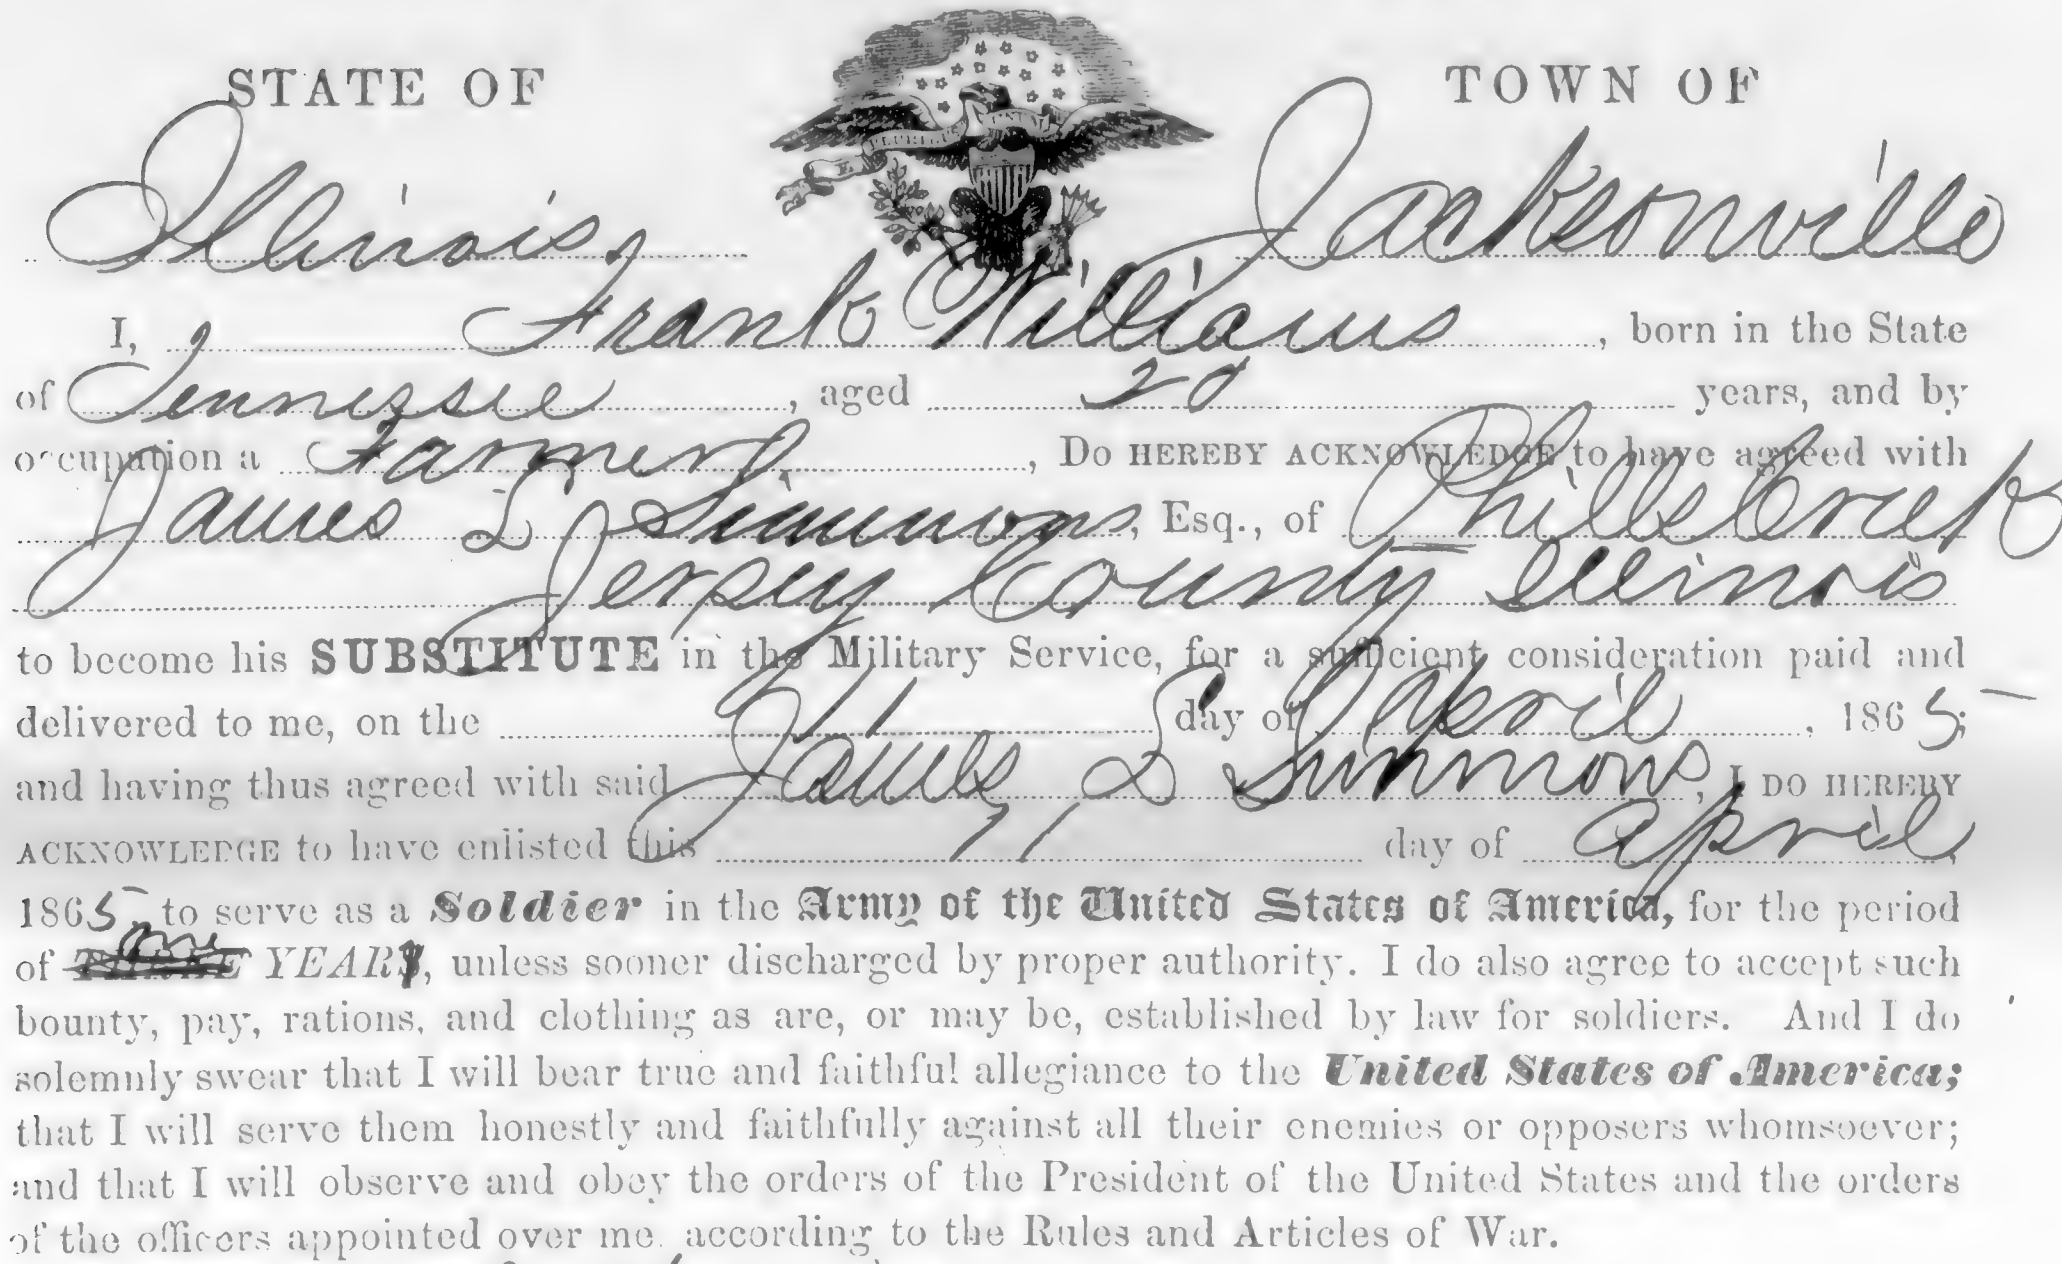 STATE OF
TOWN OF
E PLURIBUS UNUM
Illinois,
Jacksonville
I, Frank Williams, born in the State
of Tennessee, aged 20 years, and by
occupation a Farmer, DO HEREBY ACKNOWLEDGE to have agreed with
James L Simmons, Esq., of Phills Creek
Jersey County Illinois
to become his SUBSTITUTE in the Military Service, for a sufficient consideration paid and
delivered to me, on the 11 day of April, 1865;
and having thus agreed with said James L Simmons, I DO HEREBY
ACKNOWLEDGE to have enlisted this 11 day of April,
1865 to serve as a Soldier in the Army of the United States of America, for the period
of one YEAR, unless sooner discharged by proper authority. I do also agree to accept such
bounty, pay, rations, and clothing as are, or may be, established by law for soldiers. And I do
solemnly swear that I will bear true and faithful allegiance to the United States of America;
that I will serve them honestly and faithfully against all their enemies or opposers whomsoever;
and that I will observe and obey the orders of the President of the United States and the orders
of the officers appointed over me, according to the Rules and Articles of War.